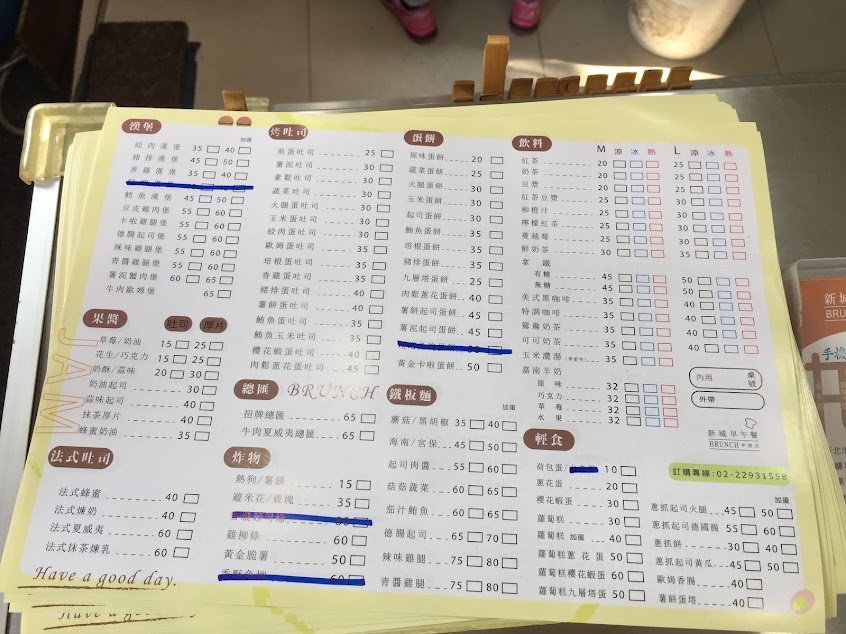 漢堡
加蛋
絞肉漢堡 35 40
豬排漢堡 45 50
香雞漢堡 35 40
鱈魚漢堡 45 50
豆皮雞肉堡 55 60
卡啦雞腿堡 55 60
德腸起司堡 55 60
辣味雞腿堡 55 60
青醬雞腿堡 55 60
薯泥蟹肉堡 60 65
牛肉歐姆堡 65
果醬 吐司 厚片
草莓/奶油 15 25
花生/巧克力 15 25
奶酥/蒜味 20 30
奶油起司 30
蒜味起司 40
抹茶厚片 40
蜂蜜奶油 35
JAM
法式吐司
法式蜂蜜 40
法式煉奶 40
法式夏威夷 60
法式抹茶煉乳 60
Have a good day.
烤吐司
煎蛋吐司 25
薯泥吐司 30
素鬆吐司 30
蔬菜吐司 30
火腿蛋吐司 30
玉米蛋吐司 30
絞肉蛋吐司 30
歐姆蛋吐司 30
培根蛋吐司 35
香雞蛋吐司 35
豬排蛋吐司 40
薯餅蛋吐司 40
鮪魚蛋吐司 35
鮪魚玉米吐司 35
櫻花蝦蛋吐司 40
肉鬆蔥花蛋吐司 45
總匯 BRUNCH
招牌總匯 65
牛肉夏威夷總匯 65
炸物
熱狗/薯餅 15
雞米花/雞塊 35
雞柳條 60
黃金脆薯 50
香酥魚柳 60
蛋餅
原味蛋餅 20
蔬菜蛋餅 25
火腿蛋餅 30
玉米蛋餅 30
起司蛋餅 30
鮪魚蛋餅 35
培根蛋餅 35
豬排蛋餅 40
九層塔蛋餅 25
肉鬆蔥花蛋餅 40
薯餅起司蛋餅 45
薯泥起司蛋餅 45
黃金卡啦蛋餅 50
鐵板麵
加蛋
蘑菇/黑胡椒 35 40
海南/宮保 45 50
起司肉醬 55 60
菇菇蔬菜 60 65
茄汁鮪魚 60 65
德腸起司 65 70
辣味雞腿 75 80
青醬雞腿 75 80
飲料 M 涼 冰 熱 L 涼 冰 熱
紅茶 20 25
奶茶 20 25
豆漿 20 25
紅茶豆漿 20 25
柳橙汁 25 30
檸檬紅茶 25 30
蔓越莓 25 30
鮮奶茶 30 35
拿鐵
有糖 45 50
無糖 45 50
美式黑咖啡 35 40
特調咖啡 35 40
鴛鴦奶茶 35 40
可可奶茶 35 40
玉米濃湯 35 50
嘉南羊奶
原味 32
巧克力 32
草莓 32
水果 32
內用 桌號
外帶
新城早午餐
BRUNCH
訂購專線:02-22931558
輕食
荷包蛋/ 10
蔥花蛋 20
櫻花蝦蛋 30
蘿蔔糕 30
蘿蔔糕 加蛋 40
蘿蔔糕蔥花蛋 50
蘿蔔糕櫻花蝦蛋 60
蘿蔔糕九層塔蛋 50
加蛋
蔥抓起司火腿 45 50
蔥抓起司德國腸 55 60
蔥抓餅 30 40
蔥抓起司黃瓜 45 50
歐姆香腸 40
薯餅蛋塔 40
Have a good day.
新城
BRU
手機